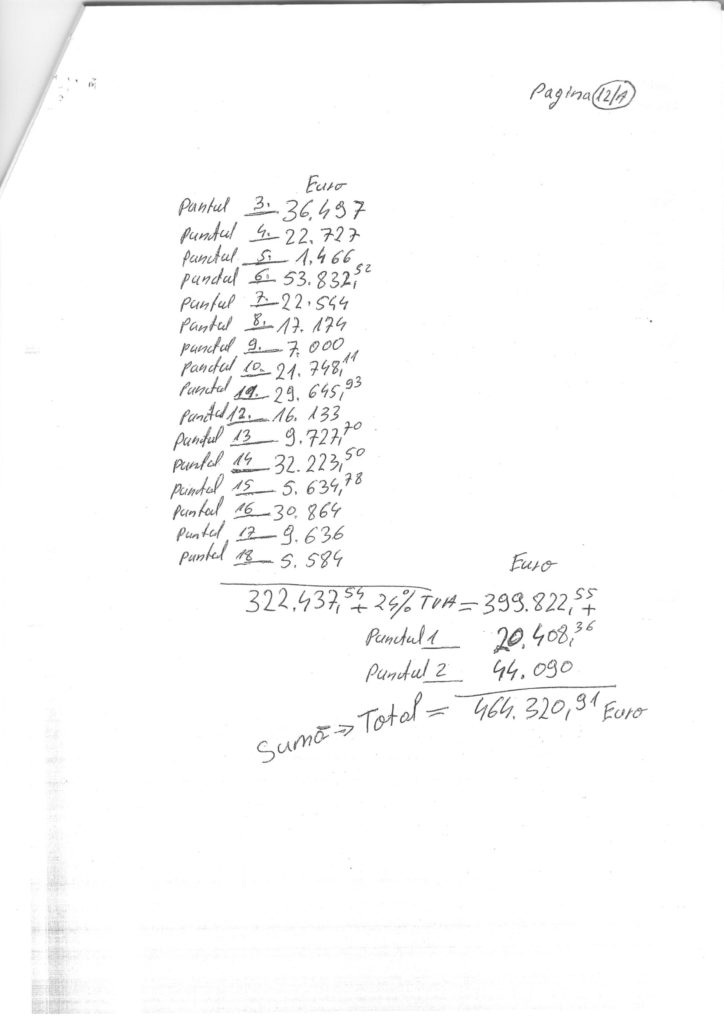 Pagina 12/A
Euro
Punctul 3. 36.497
Punctul 4. 22.727
Punctul 5. 1.466
Punctul 6. 53.832,52
Punctul 7. 22.544
Punctul 8. 17.174
Punctul 9. 7.000
Punctul 10. 21.748,11
Punctul 11. 29.645,93
Punctul 12. 16.133
Punctul 13 9.727,70
Punctul 14 32.223,50
Punctul 15 5.634,78
Punctul 16 30.864
Punctul 17 9.636
Punctul 18 5.584
Euro
322.437,54 + 24% TVA = 399.822,55 +
Punctul 1 20.408,36
Punctul 2 44.090
Sumă => Total = 464.320,91 Euro